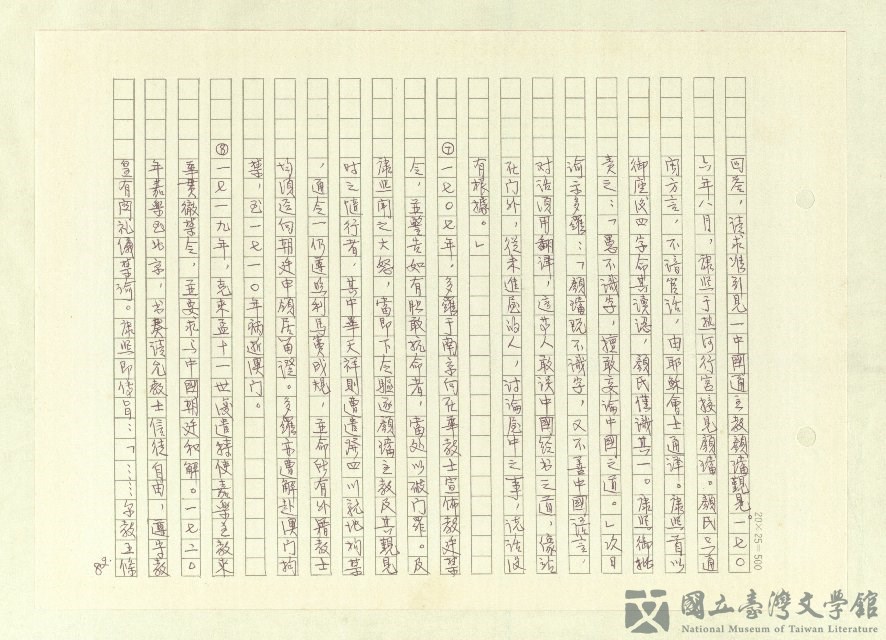 回信,請求准引見一中國通主教顏璫覲見。一七〇
六年八月,康熙于热河行宮接見顏璫。顏氏只通
闽方言,不諳官话,由耶穌會士通譯。康熙首以
御座后四字命其讀認,顏氏僅識其一。康熙御批
责之:「愚不識字,擅敢妄論中國之道。」次日
諭示多羅:「顏璫既不識字,又不善中國语言,
对话須用翻譯,這等人敢谈中國经书之道,像站
在门外,從未進屋的人,讨論屋中之事,说话没
有根據。」
⑦一七〇七年,多羅于南京向在華教士宣佈教廷禁
令,並警告如有胆敢抗命者,當处以破门罪。及
康熙闻之大怒,當即下令驅逐顏璫主教及其覲見
时之隨行者,其中畢天祥則遭遣濟四川就地拘禁
,通令一仍遵照利馬竇成規,並命所有外籍教士
均須返向朝廷申領居留證。多羅亦遭解赴澳门拘
禁,已一七一〇年病逝澳门。
⑧一七一九年,克來孟十一世復遣特使嘉樂主教來
華貫徹禁令,並要求与中國朝廷和解。一七二〇
年嘉樂已北京,上書请允教士信徒自由,遵守教
皇有関礼儀禁諭。康熙即傳旨:「⋯⋯尔教王條
82
20×25=500
國立臺灣文學館
National Museum of Taiwan Literature